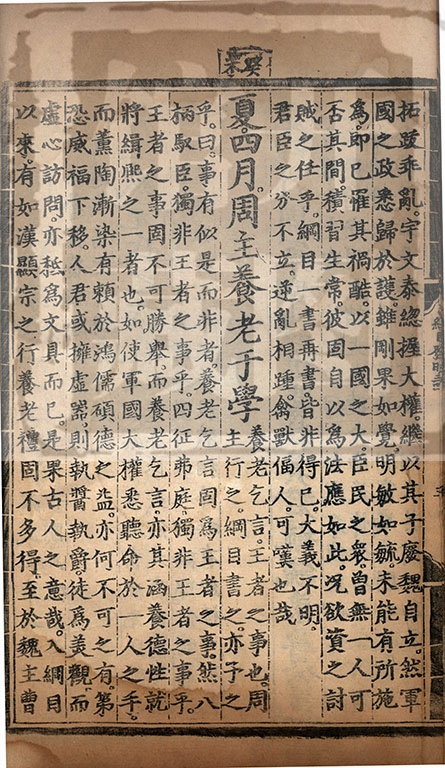 癸未
拓跋乖亂。宇文泰總握大權。繼以其子廢魏自立。然軍
國之政悉歸於護。雖剛果如覺。明敏如毓未能有所施
爲。即已罹其禍酷。以一國之大。臣民之衆。曾無一人可
否其間。積習生常。彼固自以爲法應如此。况欲資之討
賊之任乎。綱目一書再書。皆非得已。大義不明。
君臣之分不立。逆亂相踵。禽獸偪人。可嘆也哉
夏。四月。周主養老于學
養老乞言。王者之事也。周
主行之。綱目書之。亦予之
乎。曰。事有似是而非者。養老乞言固爲王者之事。然八
柄馭臣。獨非王者之事乎。四征弗庭。獨非王者之事乎。
王者之事固不可勝舉。而養老乞言。亦其涵養德性就
將緝熙之一者也。如使軍國大權悉聽命於一人之手。
而薰陶漸染有賴於鴻儒碩德之益。亦何不可之有。第
恐威福下移。人君或擁虛器。則執醬執爵徒爲美觀。而
虛心訪問。亦秪爲文具而已。是果古人之意哉。入綱目
以來。有如漢顯宗之行養老禮固不多得。至於魏主曹